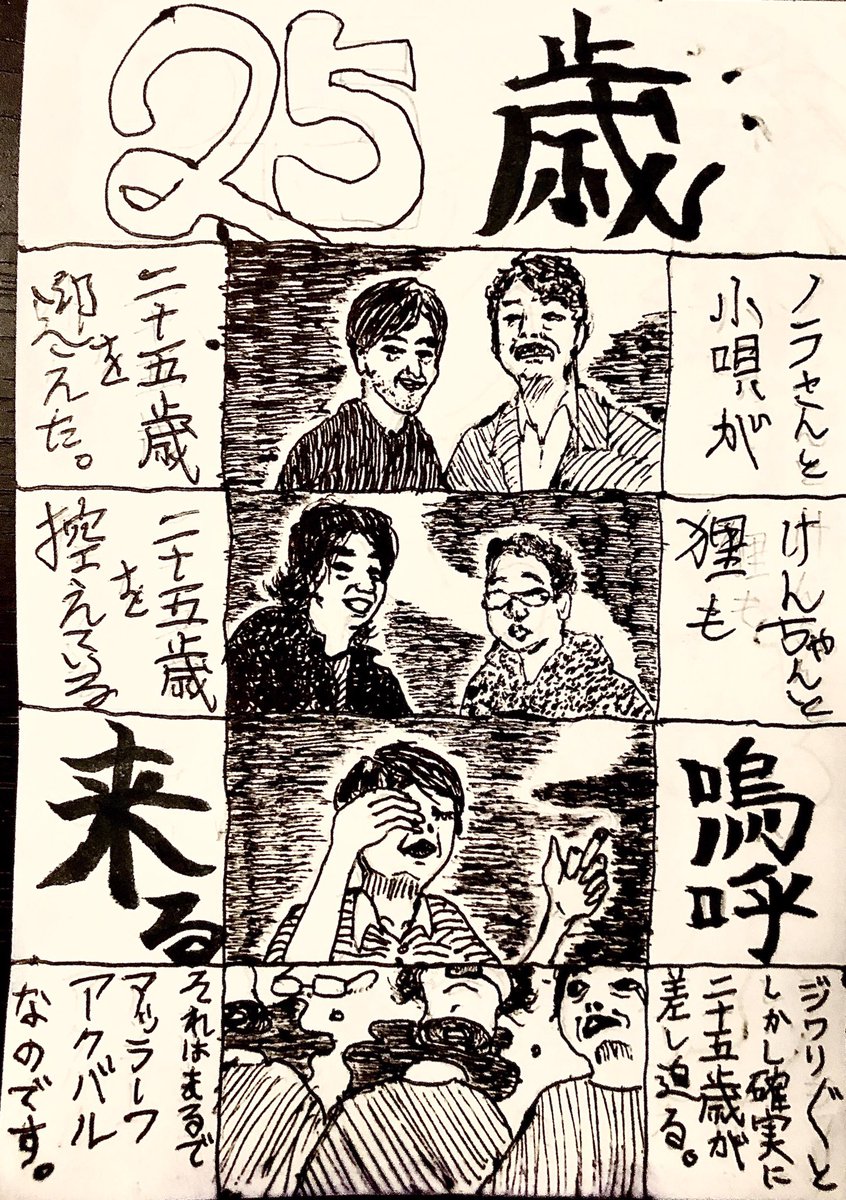 25歳
ノラさんと
小唄が
二十五歳
を
迎えた。
けんちゃんと
狸も
二十五歳
を
控えている
嗚呼
来る
ジワリ〲と
しかし確実に
二十五歳が
差し迫る。
それはまるで
アッラーフ
アクバル
なのです。